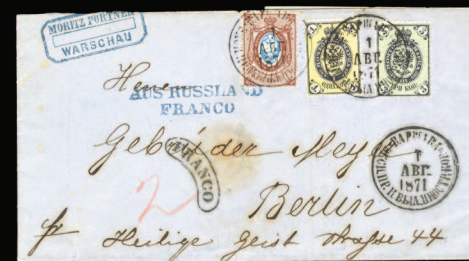 MORITZ PORTNER
WARSCHAU
1
АВГ.
1871
AUS RUSSLAND
FRANCO
Herren
Gebrüder Meyer
FRANCO
2
Berlin
1
АВГ.
1871
fr Heilige Geist Strasse 44